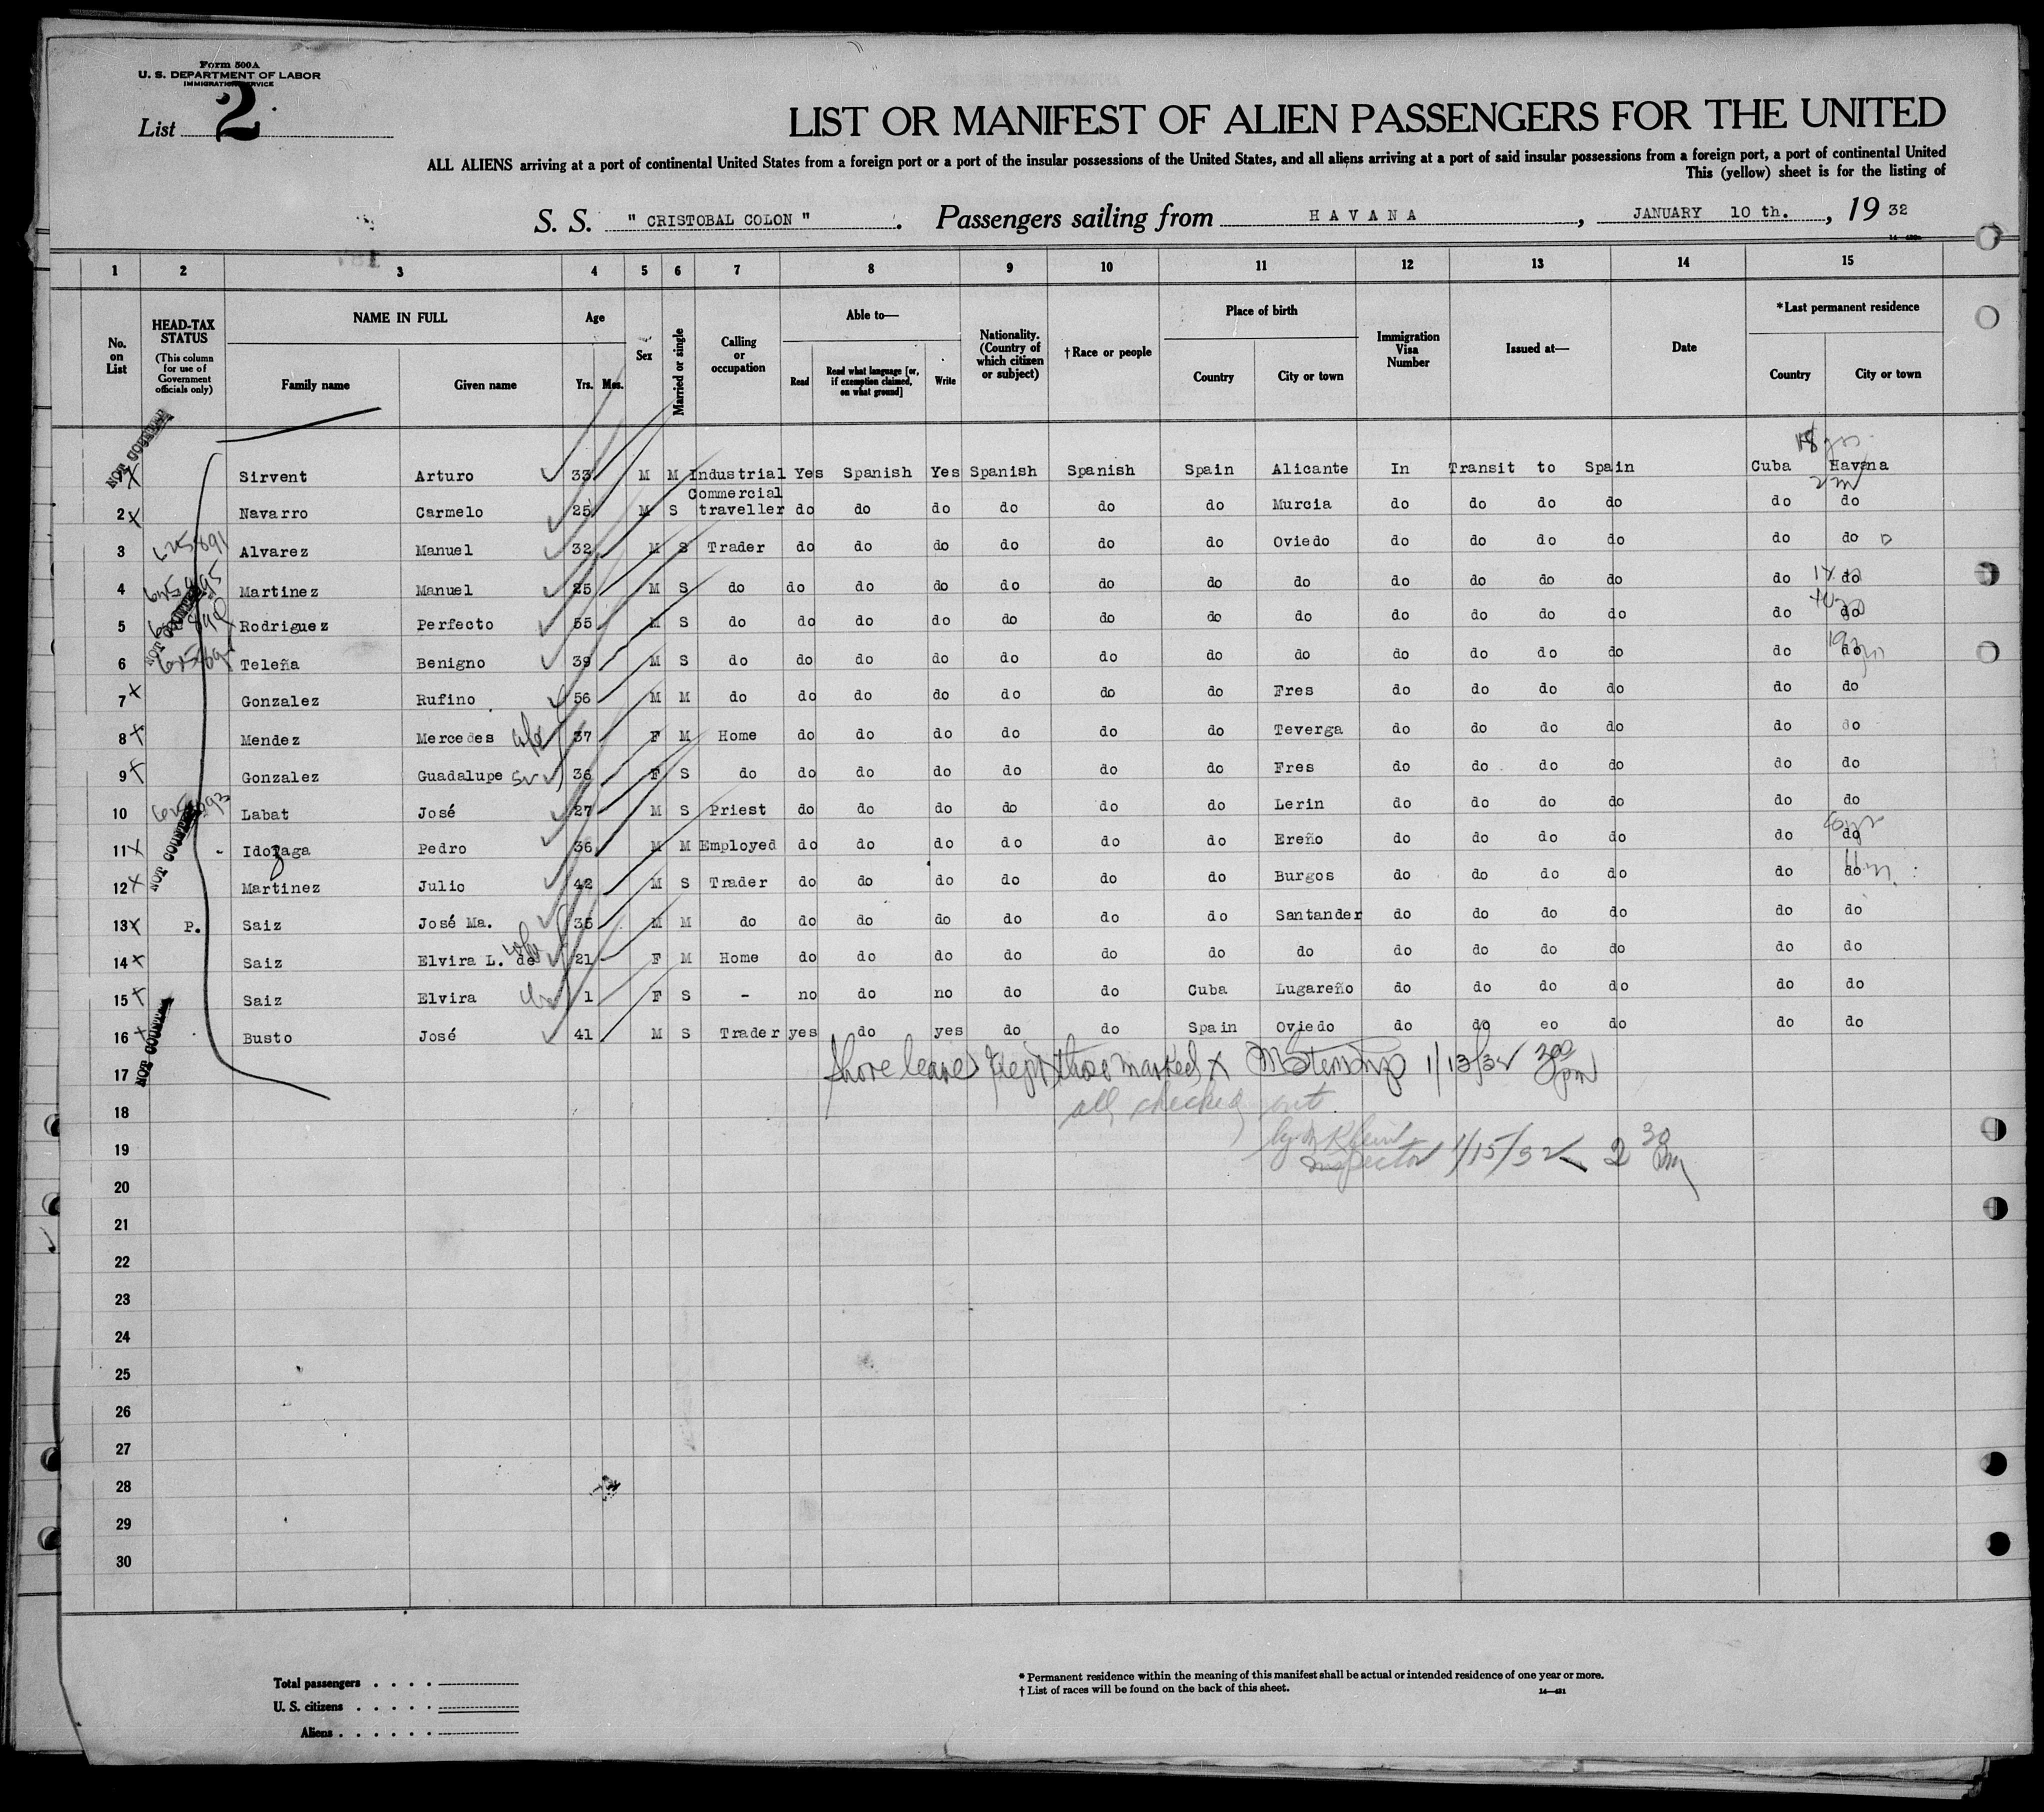 Form 500A
U. S. DEPARTMENT OF LABOR
IMMIGRATION SERVICE
List 2
LIST OR MANIFEST OF ALIEN PASSENGERS FOR THE UNITED
ALL ALIENS arriving at a port of continental United States from a foreign port or a port of the insular possessions of the United States, and all aliens arriving at a port of said insular possessions from a foreign port, a port of continental United
This (yellow) sheet is for the listing of
S. S. " CRISTOBAL COLON ". Passengers sailing from HAVANA, JANUARY 10 th., 19 32
1 2 3 4 5 6 7 8 9 10 11 12 13 14 15
No. on List
HEAD-TAX STATUS (This column for use of Government officials only)
NAME IN FULL Family name Given name
Age Yrs. Mos.
Sex
Married or single
Calling or occupation
Able to— Read Read what language [or, if exemption claimed, on what ground] Write
Nationality. (Country of which citizen or subject)
†Race or people
Place of birth Country City or town
Immigration Visa Number
Issued at—
Date
*Last permanent residence Country City or town
NOT COUNTED
X Sirvent Arturo 33 M M Industrial Yes Spanish Yes Spanish Spanish Spain Alicante In Transit to Spain Cuba Havana
2 X Navarro Carmelo 25 M S Commercial traveller do do do do do do Murcia do do do do do do
3 625891 Alvarez Manuel 32 M S Trader do do do do do do Oviedo do do do do do do
4 Martinez Manuel 25 M S do do do do do do do do do do do do do do
5 Rodriguez Perfecto 55 M S do do do do do do do do do do do do do do
6 Teleña Benigno 39 M S do do do do do do do do do do do do do do
NOT COUNTED
7 X Gonzalez Rufino 56 M M do do do do do do do Fres do do do do do do
8 X Mendez Mercedes wife 37 F M Home do do do do do do Teverga do do do do do do
9 X Gonzalez Guadalupe 36 F S do do do do do do do Fres do do do do do do
10 Labat José 27 M S Priest do do do do do do Lerin do do do do do do
11 X Idozaga Pedro 36 M M Employed do do do do do do Ereño do do do do do do
NOT COUNTED
12 X Martinez Julio 42 M S Trader do do do do do do Burgos do do do do do do
13 X P. Saiz José Ma. 35 M M do do do do do do do Santander do do do do do do
14 X Saiz Elvira L. de wife 21 F M Home do do do do do do do do do do do do do
15 X Saiz Elvira 1 F S - no do no do do Cuba Lugareño do do do do do do
16 X Busto José 41 M S Trader yes do yes do do Spain Oviedo do do eo do do do
NOT COUNTED
17 Shore leave except those marked X 1/13/32 3 00 pm
18 all checked out
19 Inspector 1/15/32 2 30 pm
20
21
22
23
24
25
26
27
28
29
30
Total passengers . . . .
U. S. citizens . . . . .
Aliens . . . . . .
* Permanent residence within the meaning of this manifest shall be actual or intended residence of one year or more.
† List of races will be found on the back of this sheet.
14—421